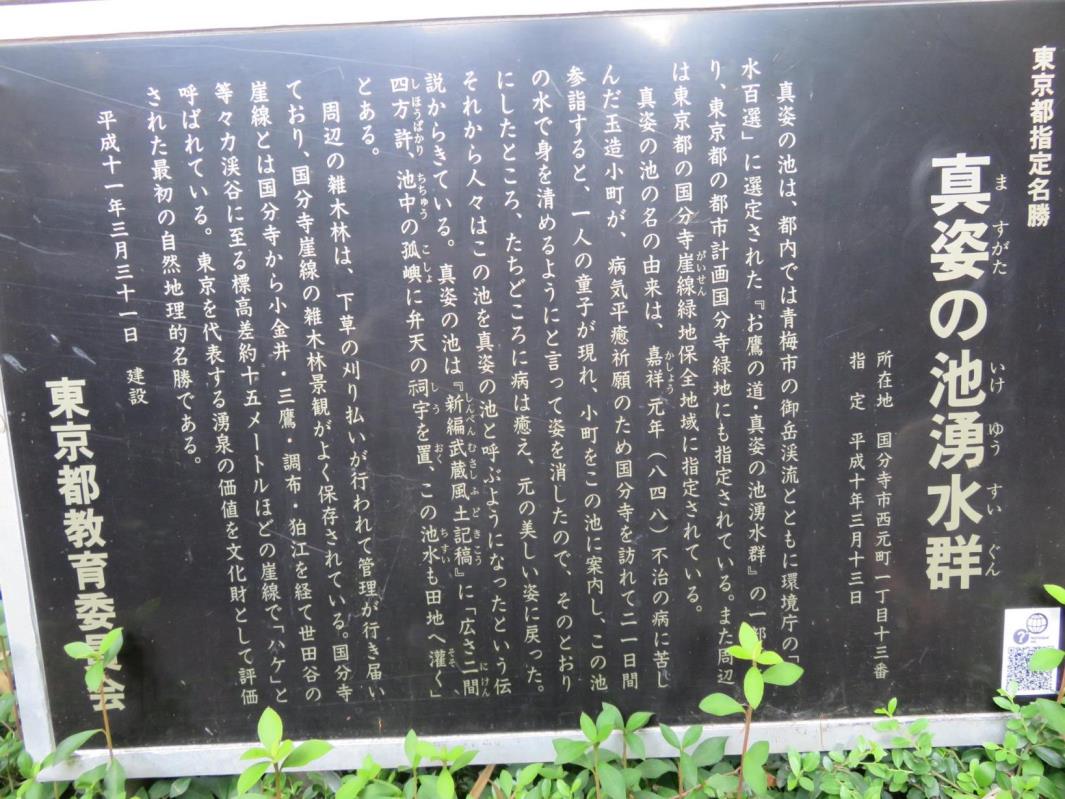 東京都指定名勝
真姿の池湧水群
ま すがた いけ ゆう すい ぐん
所在地 国分寺市西元町一丁目十三番
指 定 平成十年三月十三日
真姿の池は、都内では青梅市の御岳渓流とともに環境庁の「
水百選」に選定された『お鷹の道・真姿の池湧水群』の一部
り、東京都の都市計画国分寺緑地にも指定されている。また周辺
は東京都の国分寺崖線緑地保全地域に指定されている。
がいせん
真姿の池の名の由来は、嘉祥元年(八四八)不治の病に苦し
かしょう
んだ玉造小町が、病気平癒祈願のため国分寺を訪れて二一日間
参詣すると、一人の童子が現れ、小町をこの池に案内し、この池
の水で身を清めるようにと言って姿を消したので、そのとおり
にしたところ、たちどころに病は癒え、元の美しい姿に戻った。
それから人々はこの池を真姿の池と呼ぶようになったという伝
説からきている。真姿の池は『新編武蔵風土記稿』に「広さ二間
しんぺんむさしふどきこう にけん
四方許、池中の孤嶼に弁天の祠宇を置、この池水も田地へ灌ぐ」
しほうばかり ちちゅう こしょ しう おく ちすい そそ
とある。
周辺の雑木林は、下草の刈り払いが行われて管理が行き届い
ており、国分寺崖線の雑木林景観がよく保存されている。国分寺
崖線とは国分寺から小金井・三鷹・調布・狛江を経て世田谷の
等々力渓谷に至る標高差約十五メートルほどの崖線で「ハケ」と
呼ばれている。東京を代表する湧泉の価値を文化財として評価
された最初の自然地理的名勝である。
平成十一年三月三十一日 建設
東京都教育委員会